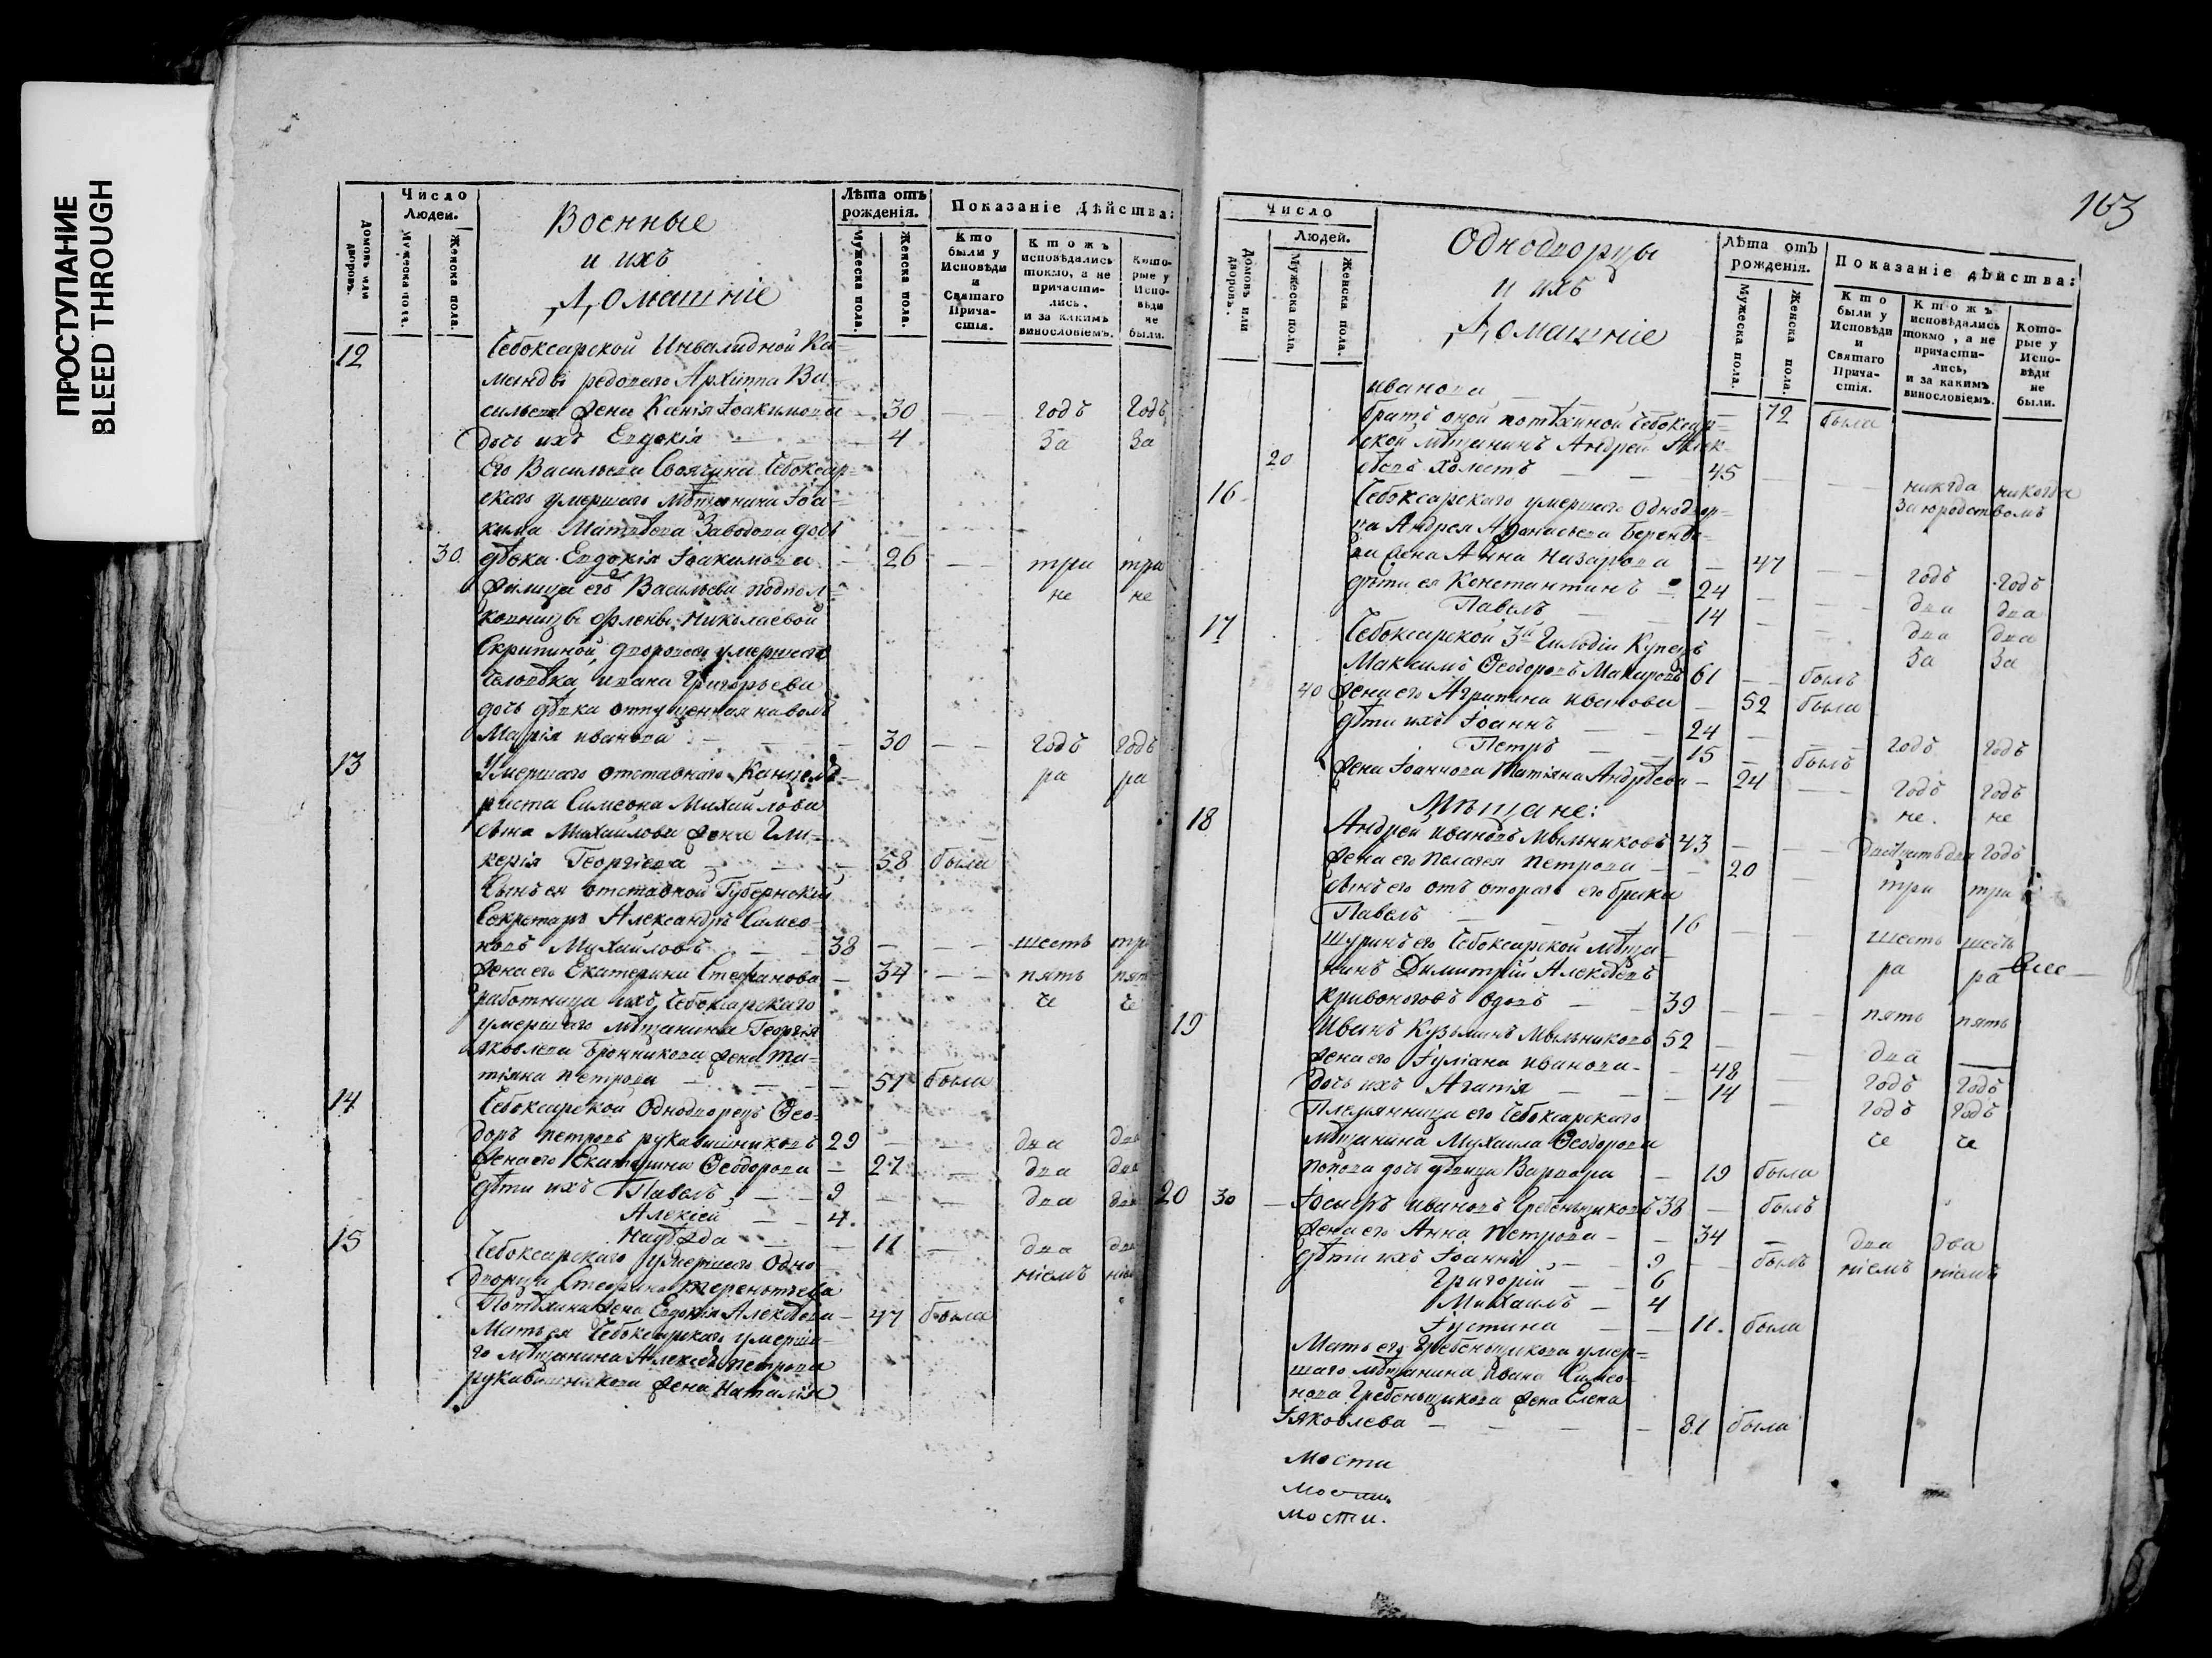 ПРОСТУПАНИЕ
BLEED THROUGH
Число
Людей.
Домовъ или дворовъ.
Мужеска пола.
Женска пола.
Военные
и ихъ
Домашніе
Лѣта отъ
рожденія.
Мужеска пола.
Женска пола.
Показаніе Дѣйства:
Кто были у Исповѣди и Святаго Прича-стія.
Ктожъ исповѣдались токмо, а не причасти-лись. и за какимъ винословіемъ.
Кото-рые у Испо-вѣди не были.
12 Чебоксарской Инвалидной Ко-
манды редоваго Архиппа Ва-
сильева жена Іоакимова 30 годъ годъ
дочь ихъ Евдокія 4 за за
Его Васильева Своячина Чебоксар-
скаго умершаго Мѣщанина Іоа-
кима Матвѣева Заводова дочь
30 дѣвка Евдокія Іоакимова 26 три три
Жилица его Васильева подпол- не не
ковницы Николаевой
Скрипиной двороваго умершаго
человѣка Ивана Григорьева
дочь дѣвка отпущенная наволю
Марія иванова 30 годъ годъ
13 Умершаго отставнаго Канцеля- ра ра
риста Симеона Михайлова
Михайлова жена Гли-
керія Георгіева 58 была
Сынъ ея отставной Губернскій
Секретарь Александръ Симео-
новъ Михайловъ 38 шесть три
жена его Екатерина Стефанова 34 пять пять
работница ихъ Чебоксарскаго че че
умершаго мѣщанина Георгія
Яковлева Бронникова жена Та-
тіяна петрова 51 была
14 Чебоксарской Однодворецъ Ѳео-
доръ петровъ рукавишниковъ 29 два два
жена его Екатерина Ѳеодорова 27 два два
дѣти ихъ Павелъ 9 два два
Алексій 4.
Надежда 11 два два
15 Чебоксарскаго умершаго Одно-
дворца Стефана терентьева ніемъ
Потѣхина жена Евдокія Алексѣева 47 была
Мать ея Чебоксарскаго умерша-
го мѣщанина Алексѣя петрова
рукавишникова жена Наталія
163
Число
Людей.
Домовъ или дворовъ.
Мужеска пола.
Женска пола.
Однодворцы
и ихъ
Домашніе
Лѣта отъ
рожденія.
Мужеска пола.
Женска пола
Показаніе дѣйства:
Кто были у Исповѣди и Святаго Прича-стія.
Ктожъ исповѣдались токмо, а не причасти-лись, и за какимъ винословіемъ.
Кото-рые у Испо-вѣди не были.
иванова 72 была
братъ оной потѣхиной Чебоксар-
ской мѣщанинъ Андрей Алек-
20 сѣевъ холостъ 45 никгда никогда
16 Чебоксарскаго умершаго Однодвор- За юродствомъ
ца Андрея Аѳанасьева
жена Анна Назарова 47 годъ годъ
дѣти ея Константинъ 24 два два
Павелъ 14 два два
17 Чебоксарской 3й Гильдіи Купецъ за за
Максимъ Ѳеодоровъ Макаровъ 61 былъ
40 жена его Агрипина иванова 52 была
дѣти ихъ Іоаннъ 24 годъ годъ
Петръ 15 былъ
жена Іоаннова Татіяна Андрѣева 24 годъ годъ
Мѣщане: не не
18 Андрей ивановъ Мыльниковъ 43 годъ
жена его пелагея петрова 20 три три
сынъ его отъ втораго его брака
Павелъ 16 шесть шесть
шуринъ его Чебоксарской мѣща- ра ра
нинъ Димитрій Алексѣевъ
Кривоноговъ вдовъ 39 пять пять
19 Иванъ Кузьминъ Мыльниковъ 52 два
жена его Іуліана иванова 48 годъ годъ
дочь ихъ Агапія 14 годъ годъ
Племянница его Чебоксарскаго че че
мѣщанина Михаила Ѳеодорова
попова дочь дѣвица Варвара 19 была
20 30 Іосифъ ивановъ Гребеньщиковъ 38 былъ
жена его Анна петрова 34 два два
дѣти ихъ Іоаннъ 9 былъ ніемъ ніемъ
Григорій 6
Михаилъ 4
Іустина 11. была
Мать его Гребеньщикова умер-
шаго мѣщанина Ивана Симео-
нова Гребеньщикова жена Елена
Іяковлева 81 была
Мости
Мости.
Мости.